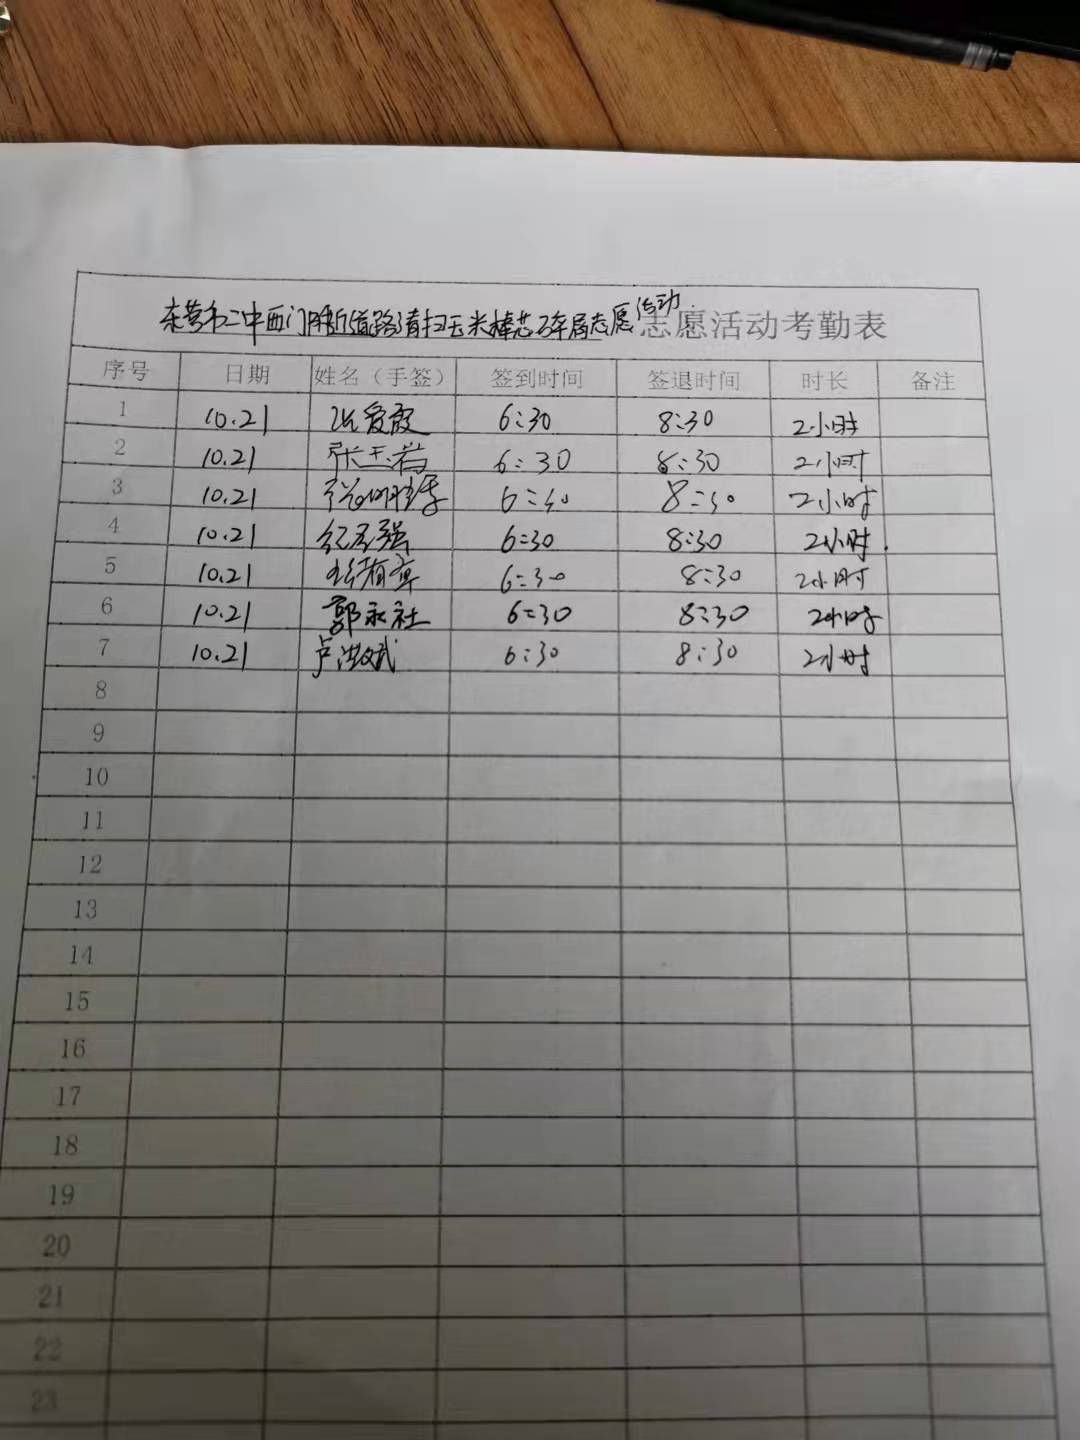 东营市二中西门前道路清扫玉米棒芯碎屑志愿活动 志愿活动考勤表
序号 日期 姓名（手签） 签到时间 签退时间 时长 备注
1 10.21 张爱霞 6:30 8:30 2小时
2 10.21 张玉岩 6:30 8:30 2小时
3 10.21 8:30 2小时
4 10.21 纪玉强 6:30 8:30 2小时
5 10.21 6:30 8:30 2小时
6 10.21 郭永社 6:30 8:30 2小时
7 10.21 卢洪斌 6:30 8:30 2小时
8
9
10
11
12
13
14
15
16
17
18
19
20
21
22
23